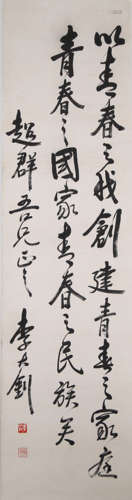 以青春之我創建青春之家庭
青春之國家青春之民族矣
超群吾兄正之
李大釗